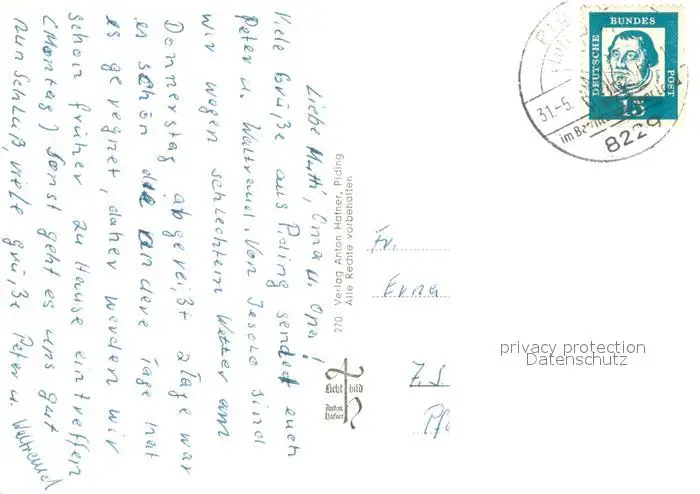 Liebe Mutti, Oma u. Opa!
Viele Grüße aus Piding sendet euch
Peter u. Waltraud. Von Jesolo sind
wir wegen schlechtem Wetter am
Donnerstag abgereißt 2 Tage war
es schön die andere Tage hat
es geregnet, daher werden wir
schon früher zu Hause eintreffen
(Montag) sonst geht es uns gut
nun Schluß, viele grüße Peter u. Waltraud
270 Verlag Anton Hafner, Piding
Alle Rechte vorbehalten
Licht bild
Anton
Hafner
DEUTSCHE BUNDES POST
15
31.-5.
8229
Fr.
Erna
Z.S.
privacy protection
Datenschutz